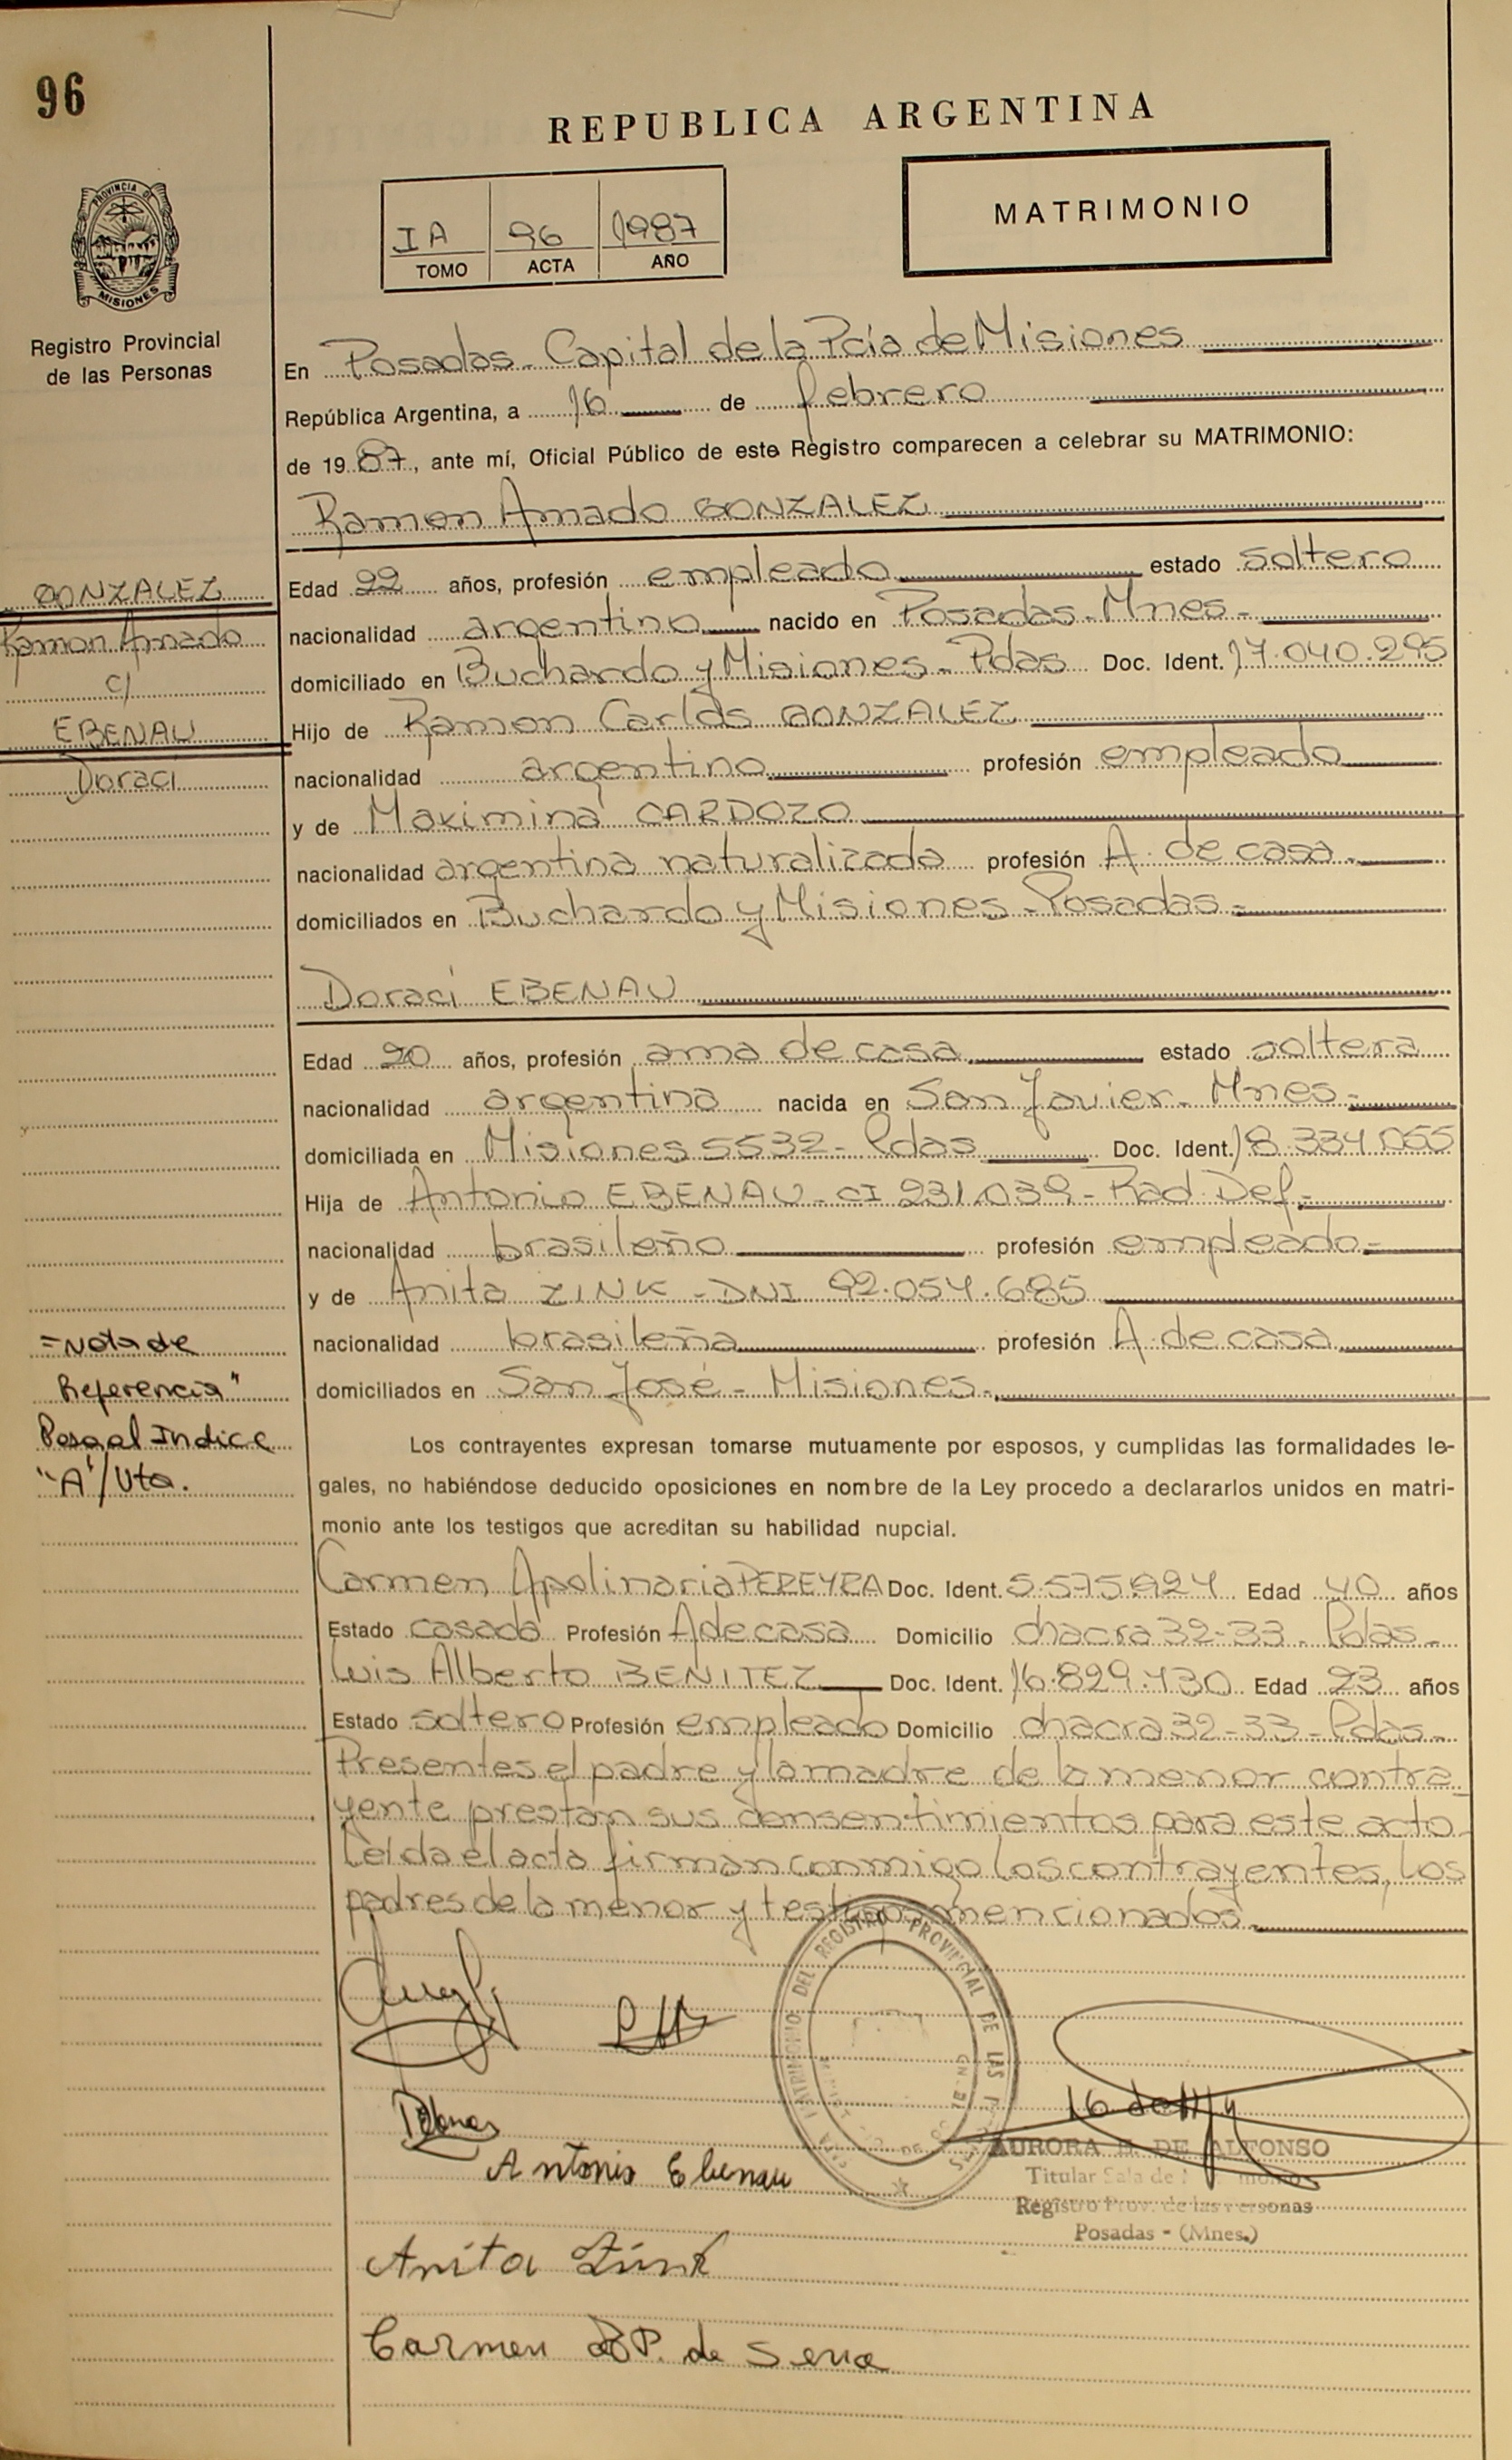 96
REPUBLICA ARGENTINA
PROVINCIA DE
MISIONES
Registro Provincial
de las Personas
IA 96 1987
TOMO ACTA AÑO
MATRIMONIO
En Posadas - Capital de la Pcia de Misiones
República Argentina, a 16 de febrero
de 1987, ante mí, Oficial Público de este Registro comparecen a celebrar su MATRIMONIO:
Ramon Amado GONZALEZ
GONZALEZ
Ramon Amado
c/
EBENAU
Doraci
Edad 22 años, profesión empleado estado soltero
nacionalidad argentino nacido en Posadas - Mnes -
domiciliado en Buchardo y Misiones - Pdas Doc. Ident. 17.040.295
Hijo de Ramon Carlos GONZALEZ
nacionalidad argentino profesión empleado
y de Maximina CARDOZO
nacionalidad argentina naturalizada profesión A. de casa.
domiciliados en Buchardo y Misiones - Posadas -
Doraci EBENAU
Edad 20 años, profesión ama de casa estado soltera
nacionalidad argentina nacida en San Javier - Mnes -
domiciliada en Misiones 5532 - Pdas Doc. Ident. 18.334.055
Hija de Antonio EBENAU - CI 231.039 - Rad. Def -
nacionalidad brasileño profesión empleado -
y de Anita ZINK - DNI 92.054.685
nacionalidad brasileña profesión A. de casa
domiciliados en San José - Misiones -
= Nota de
Referencia"
Pasa al Indice
"A"/Vta.
Los contrayentes expresan tomarse mutuamente por esposos, y cumplidas las formalidades le-
gales, no habiéndose deducido oposiciones en nombre de la Ley procedo a declararlos unidos en matri-
monio ante los testigos que acreditan su habilidad nupcial.
Carmen Apolinaria PEREYRA Doc. Ident. 5.575.924 Edad 40 años
Estado casada Profesión A de casa Domicilio chacra 32-33 - Pdas -
Luis Alberto BENITEZ Doc. Ident. 16.829.430 Edad 23 años
Estado soltero Profesión empleado Domicilio chacra 32-33 - Pdas -
Presentes el padre y la madre de la menor contra
yente prestan sus consentimientos para este acto -
Leída el acta firman conmigo los contrayentes, los
padres de la menor y testigos mencionados -
DEL REGISTRO PROVINCIAL DE LAS
Antonio Ebenau
AURORA DE ALFONSO
Titular Sala de
Registro Prov. de las Personas
Posadas - (Mnes.)
Anita Zink
Carmen P. de